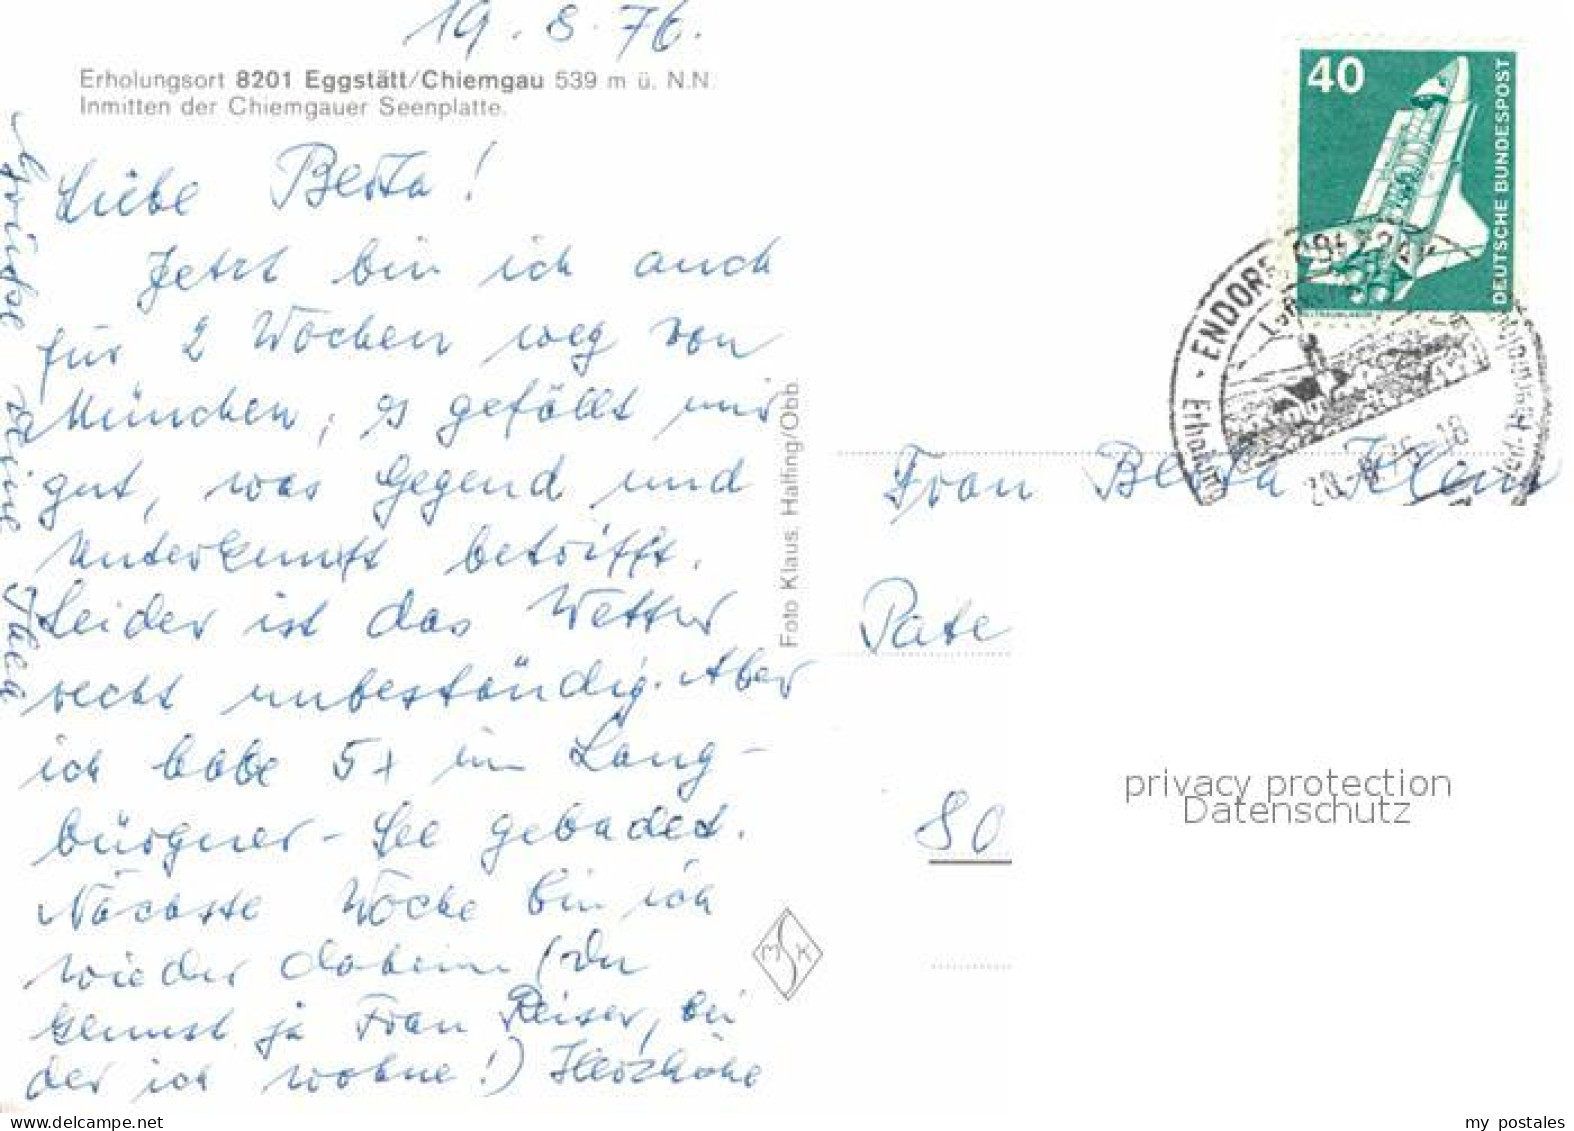 19.8.76.
Erholungsort 8201 Eggstätt/Chiemgau 539 m ü. N.N.
Inmitten der Chiemgauer Seenplatte.
Liebe Berta!
Jetzt bin ich auch
für 2 Wochen weg von
München, es gefällt mir
gut, was Gegend und
Unterkunft betrifft.
Leider ist das Wetter
recht unbeständig. Aber
ich habe 5x im Lang-
bürgner-See gebadet.
Nächste Woche bin ich
wieder daheim (Du
kennst ja Frau Reiser, bei
der ich wohne!) Herzliche
Grüsse Deine
Foto Klaus, Halfing/Obb.
MSK
40
DEUTSCHE BUNDESPOST
ENDORF, OBB
20.-8.76-18
Frau Berta Klein
Pate
80
privacy protection
Datenschutz
my postales
www.delcampe.net